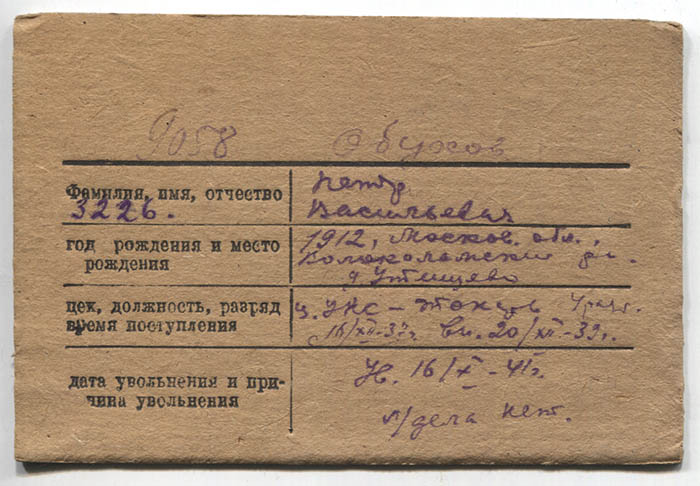 9058 Обухов
Фамилия, имя, отчество
3226.
Петр
Васильевич
год рождения и место
рождения
1912, Москов. обл.,
Волоколамский р-н
д. Утишево
цех, должность, разряд
время поступления
ц. УНС - токарь 4 разр.
16/XII-37г. вн. 20/XII-39г.
дата увольнения и при-
чина увольнения
Ув. 16/X-41г.
л/дела нет.